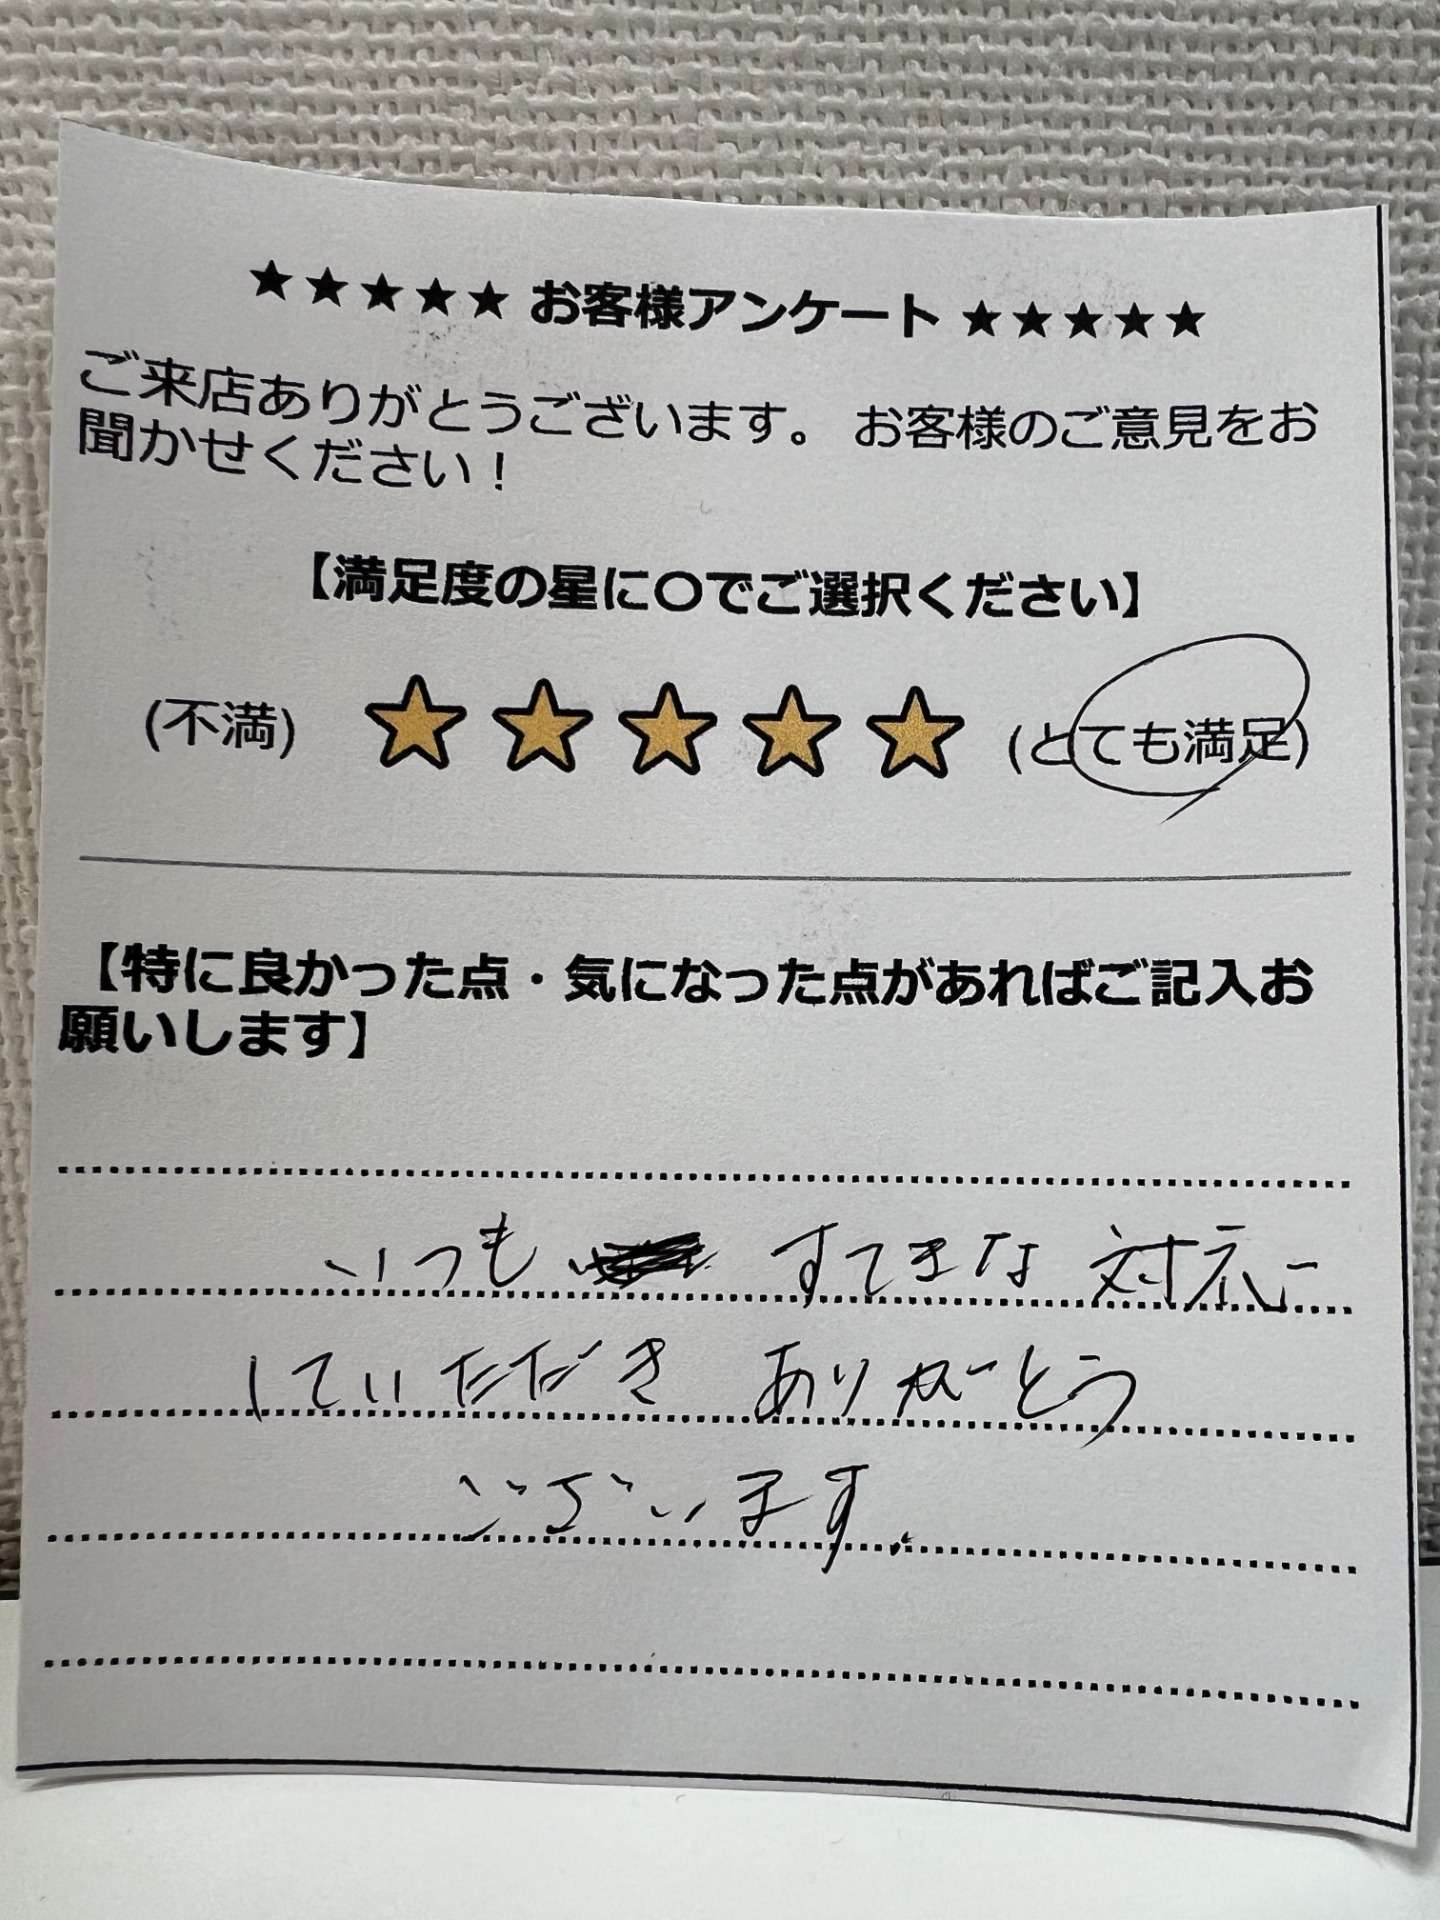 ★★★★★ お客様アンケート ★★★★★
ご来店ありがとうございます。 お客様のご意見をお
聞かせください！
【満足度の星に〇でご選択ください】
(不満) ★★★★★ (とても満足)
【特に良かった点・気になった点があればご記入お
願いします】
いつも すてきな 対応
していただき ありがとう
ございます。